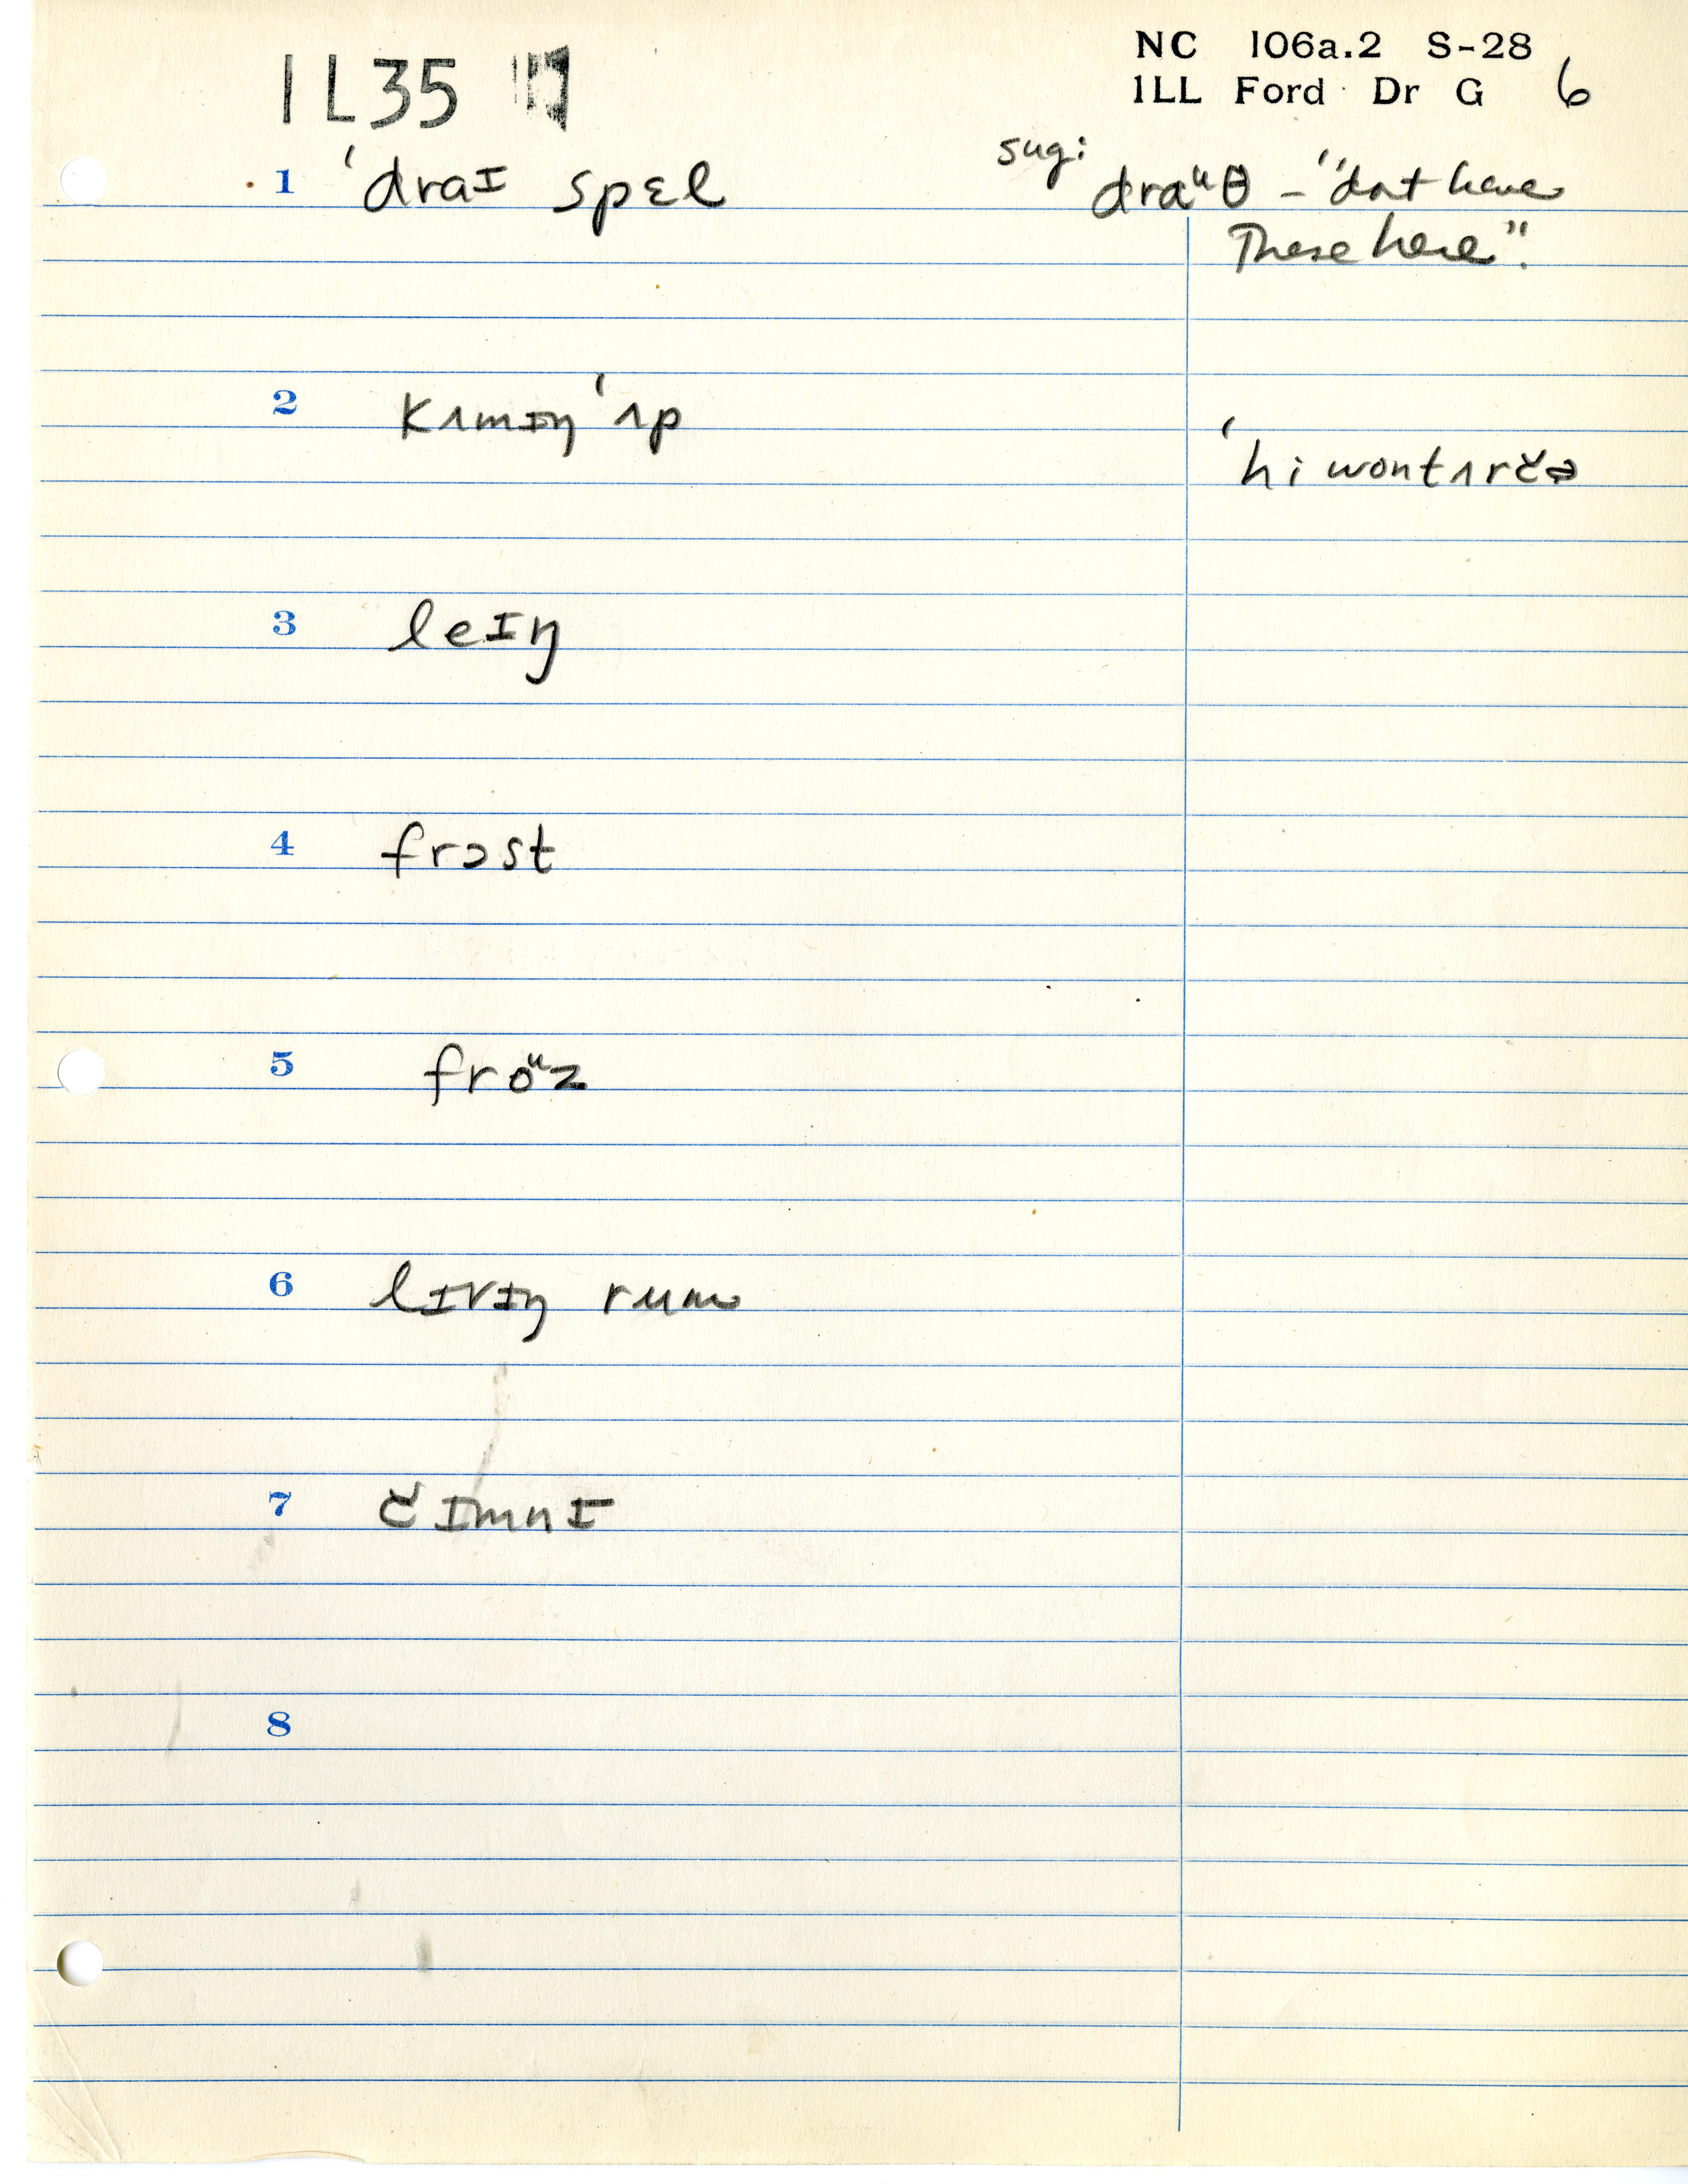 IL35
NC 106a.2 S-28
ILL Ford Dr G 6
1 ˈdraɪ spɛl
sug: draᵘθ – "don't have
These here".
2 kʌmɪŋ ˈʌp
ˈhi wont ʌrčɚ
3 leɪŋ
4 frɔst
5 froᵘz
6 lɪvɪŋ rum
7 čɪmnɪ
8